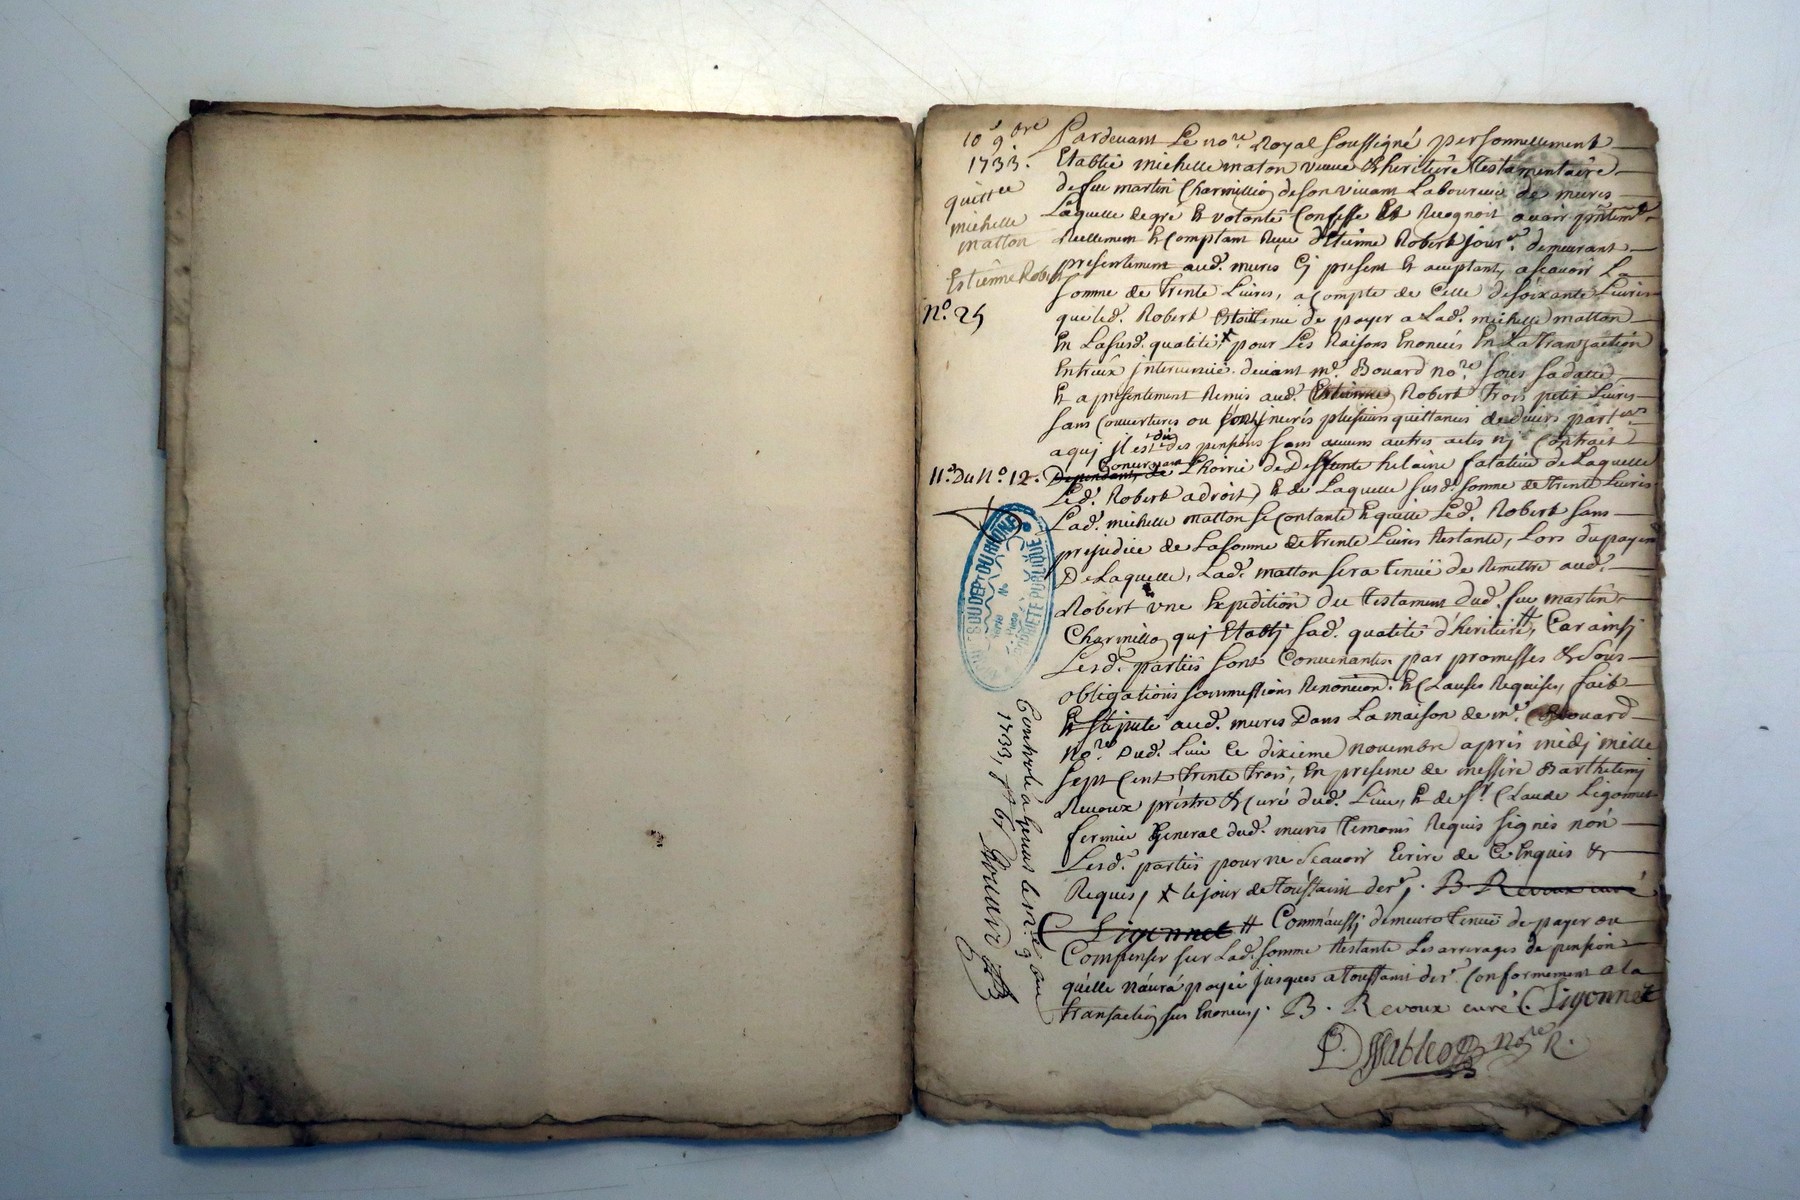 10e 9bre
1733.
quittce
michelle
matton
Estienne Robert
No. 25
Pardeuant Le nore. Royal Soussigné personnellement
Etablie michelle maton veuue & heritiere testamentaire
de feu martin Charmillio de son viuant Laboureur de mures
Laquelle de gré et volonté Confesse Et Recognoit auoir
Reellement et Comptant Reçu d'Etienne Robert jourer. demeurant
presentement aud. mures Cj present et aceptant, ascauoir La
Somme de trente Liures, a compte de Celle de soixante Liures
que led. Robert Estoit tenu de payer a Lad. michelle matton
En Lasusd. qualité, x pour Les Raisons Enoncés En La transaction
Entreux interuenüe deuant me. Bouard nore. Sous sa datte
Et a presentement Remis aud. Estienne Robert trois petit Liures
sans Couuertures ou sont inserés plusieurs quittances
aquj il est dû des pensions sans aucuns autres actes nj Contrait
11e. Du No. 12. Concernant L'hoirie de Deffunte helaine falatieu de Laquelle
Led. Robert a droit, Et de Laquelle susd. somme de trente Liures
Lad. michelle matton se Contante Et quitte Led. Robert sans
prejudice de La somme de trente Liures Restante, Lors du payem
De Laquelle, Lad. matton sera tenüe de Remettre aud.
Robert une Expedition du testament dud. feu martin
Charmillo quj Etablj sad. qualité d'heritiere, # Car ainsj
Lesd. parties sont Conuenantes par promesses & sous
obligations soummissions Renoncion. Et Clauses Requises, fait
Et stipulé aud. mures Dans La maison de me. Bouard
nore. Dud. Lieu Ce dixieme nouembre apres midj mille
Sept Cent trente trois, En presence de messire Barthelemj
Reuoux prestre & Curé dud. Lieu, Et de Sr. Claude Ligonnet
fermier General dud. mures temoins Requis signés non
Lesd. parties pour ne scauoir Ecrire de Ce Enquis &
Requis, x le jour de toussaint der. B. Revoux curé
C Ligonnet # Comm'aussj demeure tenüe de payer ou
Compenser sur Lad. somme Restante Les arrerages de pension
qu'elle n'aura payée jusques a toussaint der. Conformement a la
transaction sus Enoncée. B. Revoux curé C. Ligonnet
nore R.
Controlé a Genas le
1733,
PROPRIETE PUBLIQUE
DU DEPT DU RHÔNE